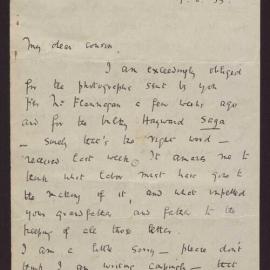 My dear cousin,
I am exceedingly obliged
for the photographs sent by you
Mr Flannagan a few weeks ago
and for the bulky Hayward Saga
– surely that's the right word –
received last week. It amazes me to
think what labor must have gone to
the making of it, and what impelled
your grandfather and father to the
keeping of all those letters.
I am a little sorry – please don't
think I am writing carpingly – that